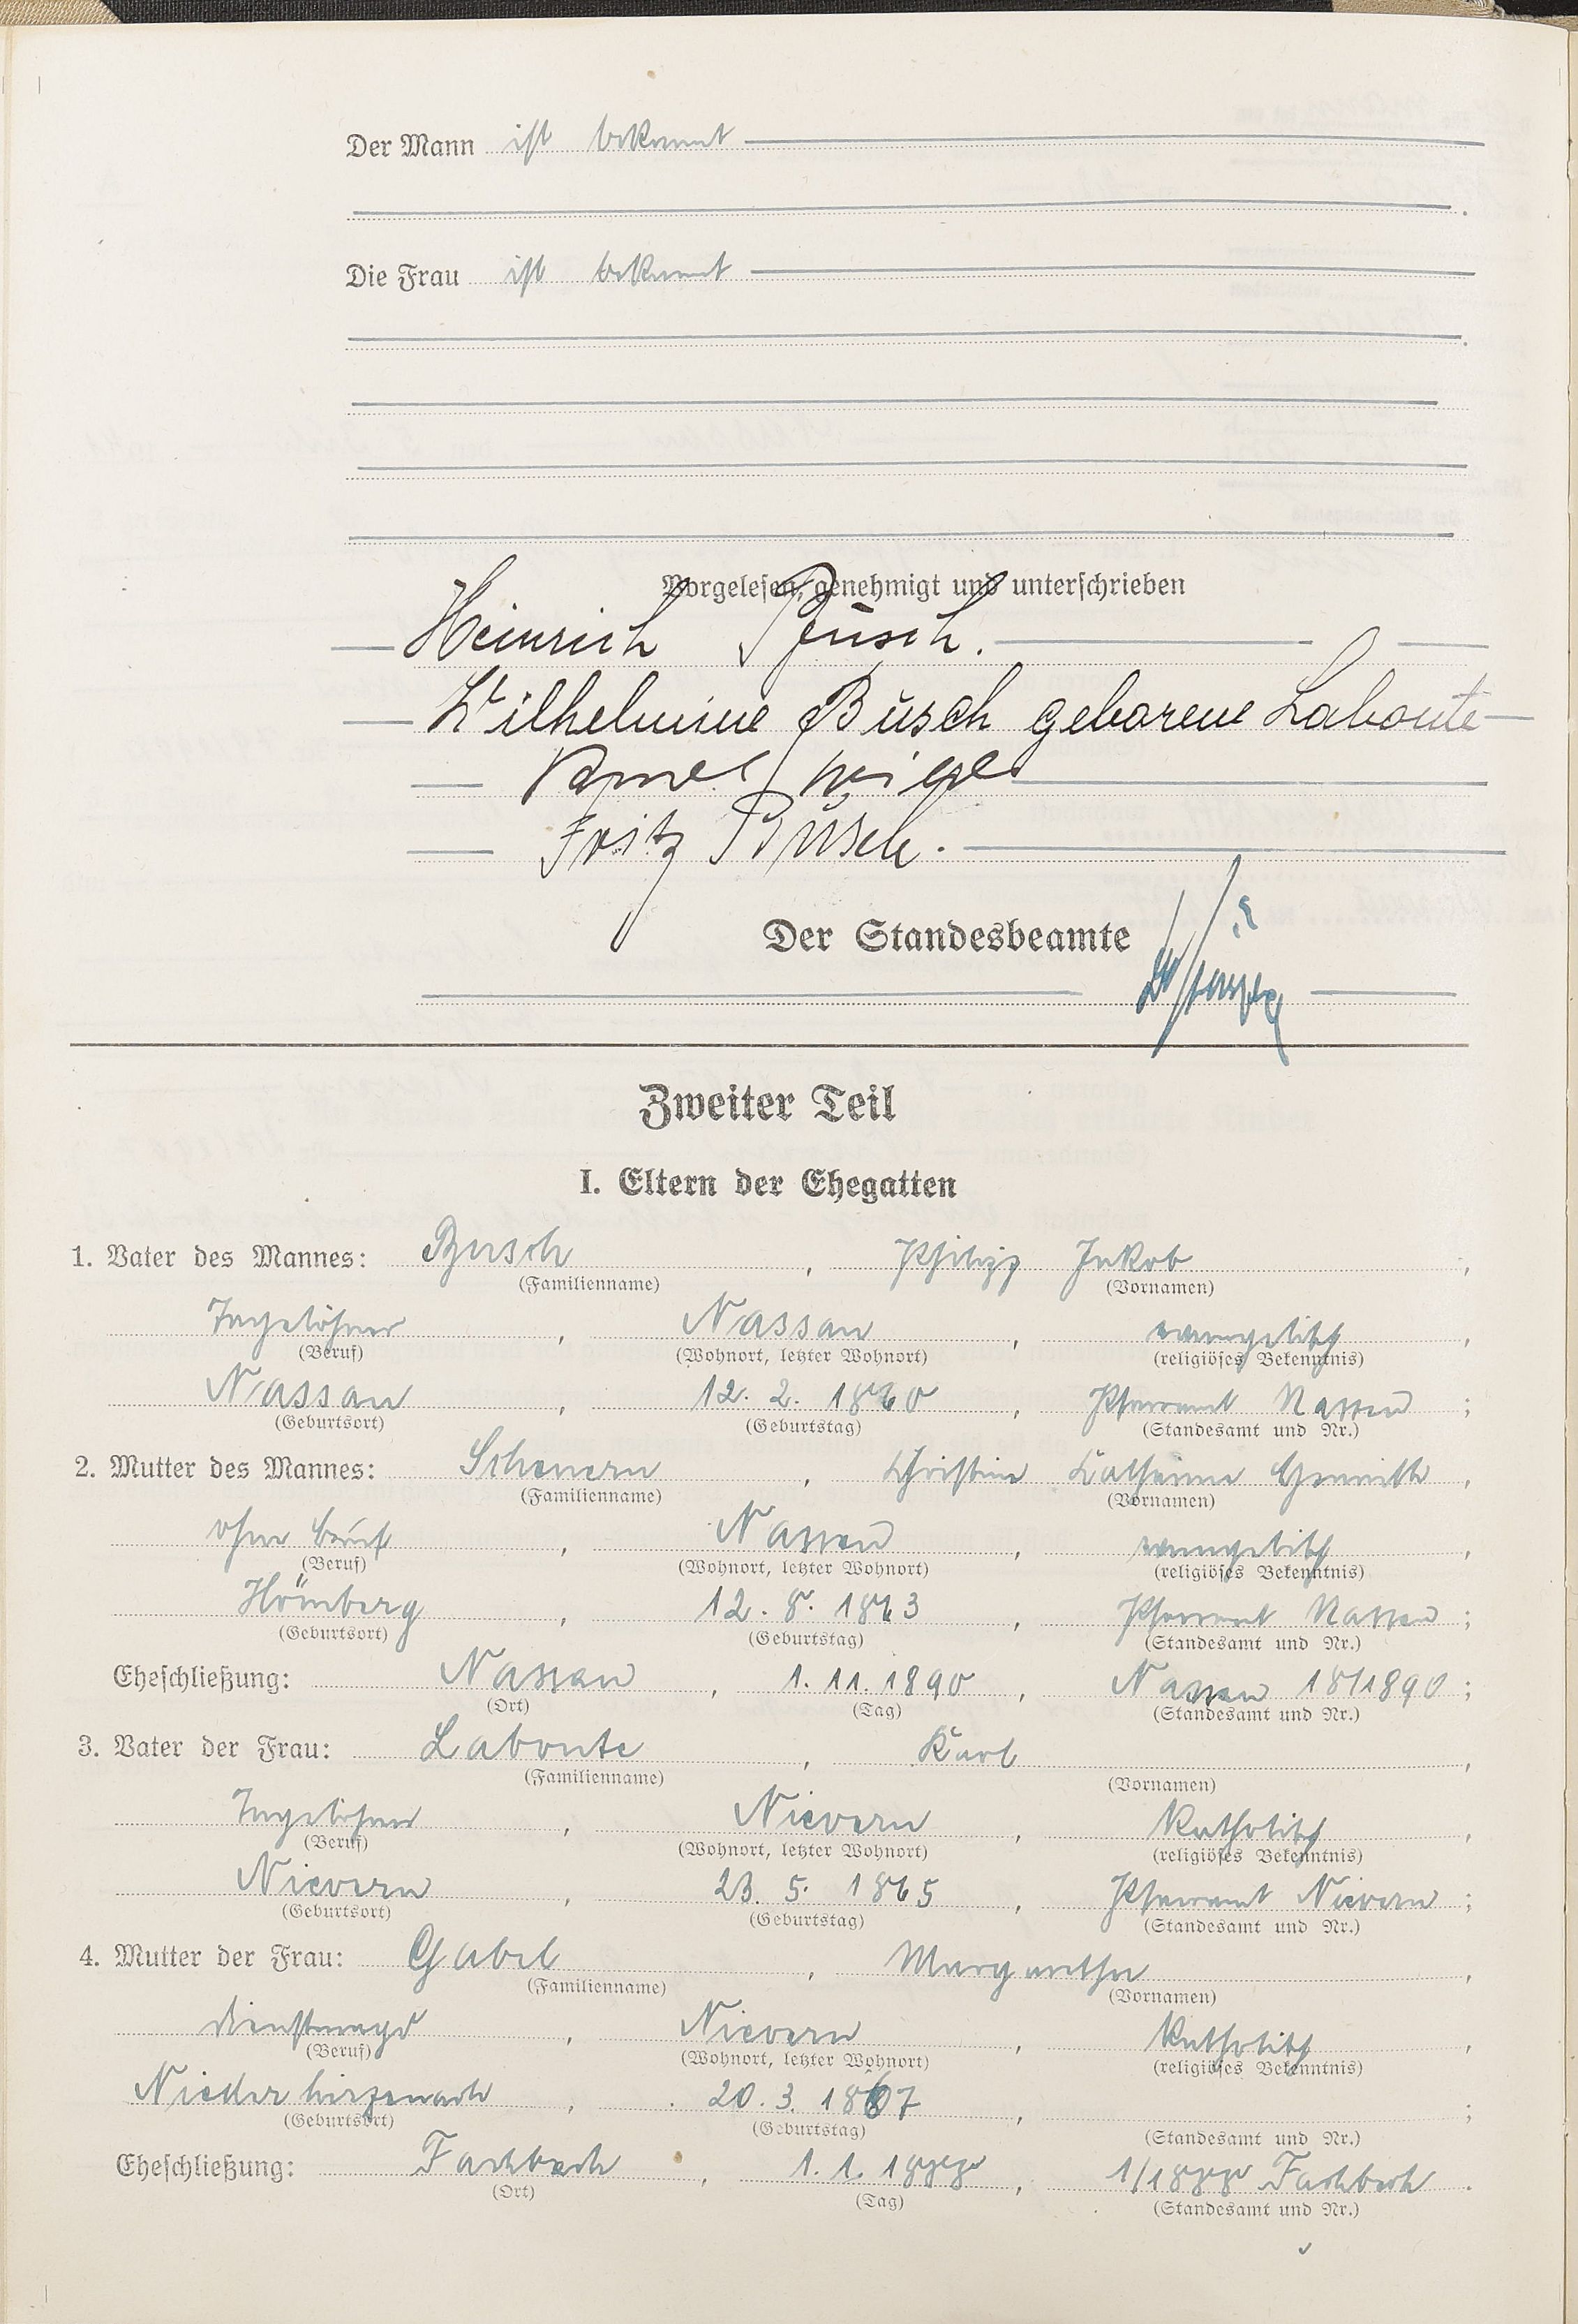 Der Mann ist bekannt
Die Frau ist bekannt
Vorgelesen, genehmigt und unterschrieben
Heinrich Busch.
Wilhelmine Busch geborene Labonte
Fritz Busch.
Der Standesbeamte
Zweiter Teil
I. Eltern der Ehegatten
1. Vater des Mannes: Busch, Philipp Jakob,
(Familienname) (Vornamen)
Tagelöhner, Nassau, evangelisch,
(Beruf) (Wohnort, letzter Wohnort) (religiöses Bekenntnis)
Nassau, 12. 2. 1860, Pfarramt Nassau;
(Geburtsort) (Geburtstag) (Standesamt und Nr.)
2. Mutter des Mannes: Scheuern, Christine Katharine,
(Familienname) (Vornamen)
ohne Beruf, Nassau, evangelisch,
(Beruf) (Wohnort, letzter Wohnort) (religiöses Bekenntnis)
Hömberg, 12. 8. 1863, Pfarramt Nassau;
(Geburtsort) (Geburtstag) (Standesamt und Nr.)
Eheschließung: Nassau, 1. 11. 1890, Nassau 18/1890;
(Ort) (Tag) (Standesamt und Nr.)
3. Vater der Frau: Labonte, Karl,
(Familienname) (Vornamen)
Tagelöhner, Nievern, katholisch,
(Beruf) (Wohnort, letzter Wohnort) (religiöses Bekenntnis)
Nievern, 23. 5. 1865, Pfarramt Nievern;
(Geburtsort) (Geburtstag) (Standesamt und Nr.)
4. Mutter der Frau: Gabel, Margaretha,
(Familienname) (Vornamen)
Dienstmagd, Nievern, katholisch,
(Beruf) (Wohnort, letzter Wohnort) (religiöses Bekenntnis)
Niederhirzenach, 20. 3. 1867, ;
(Geburtsort) (Geburtstag) (Standesamt und Nr.)
Eheschließung: Fachbach, 1. 1. 1888, 1/1888 Fachbach.
(Ort) (Tag) (Standesamt und Nr.)